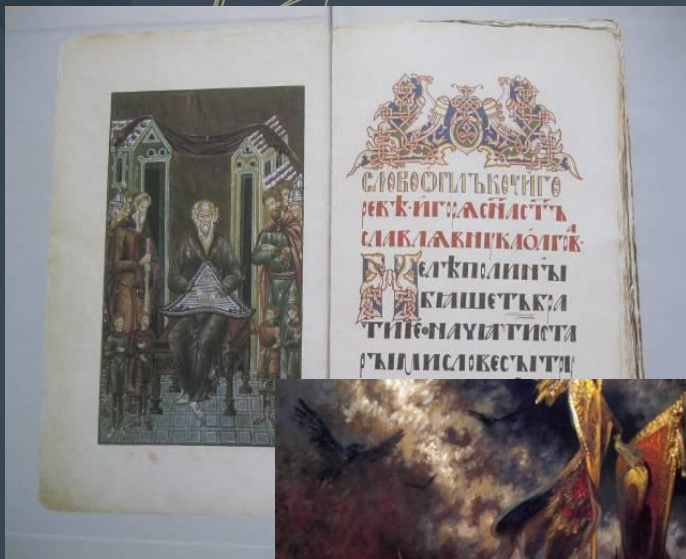 СЛОВОѠПЛЪКОУИГО
РЕВѢ·ИГОРѦСН҃АСТ҃Ъ
СЛАВЛѦВНꙊКАОЛГОВ·
НЕЛѢПОЛИНЫ
БѦШЕТЪБРА
ТИѤ·НАЧѦТИСТА
РЫМИСЛОВЕСЫТРꙊ